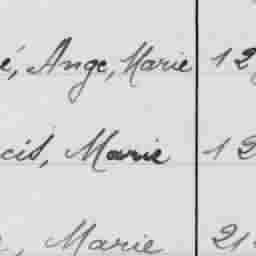 é, Ange, Marie 12
cis, Marie 12
, Marie 21